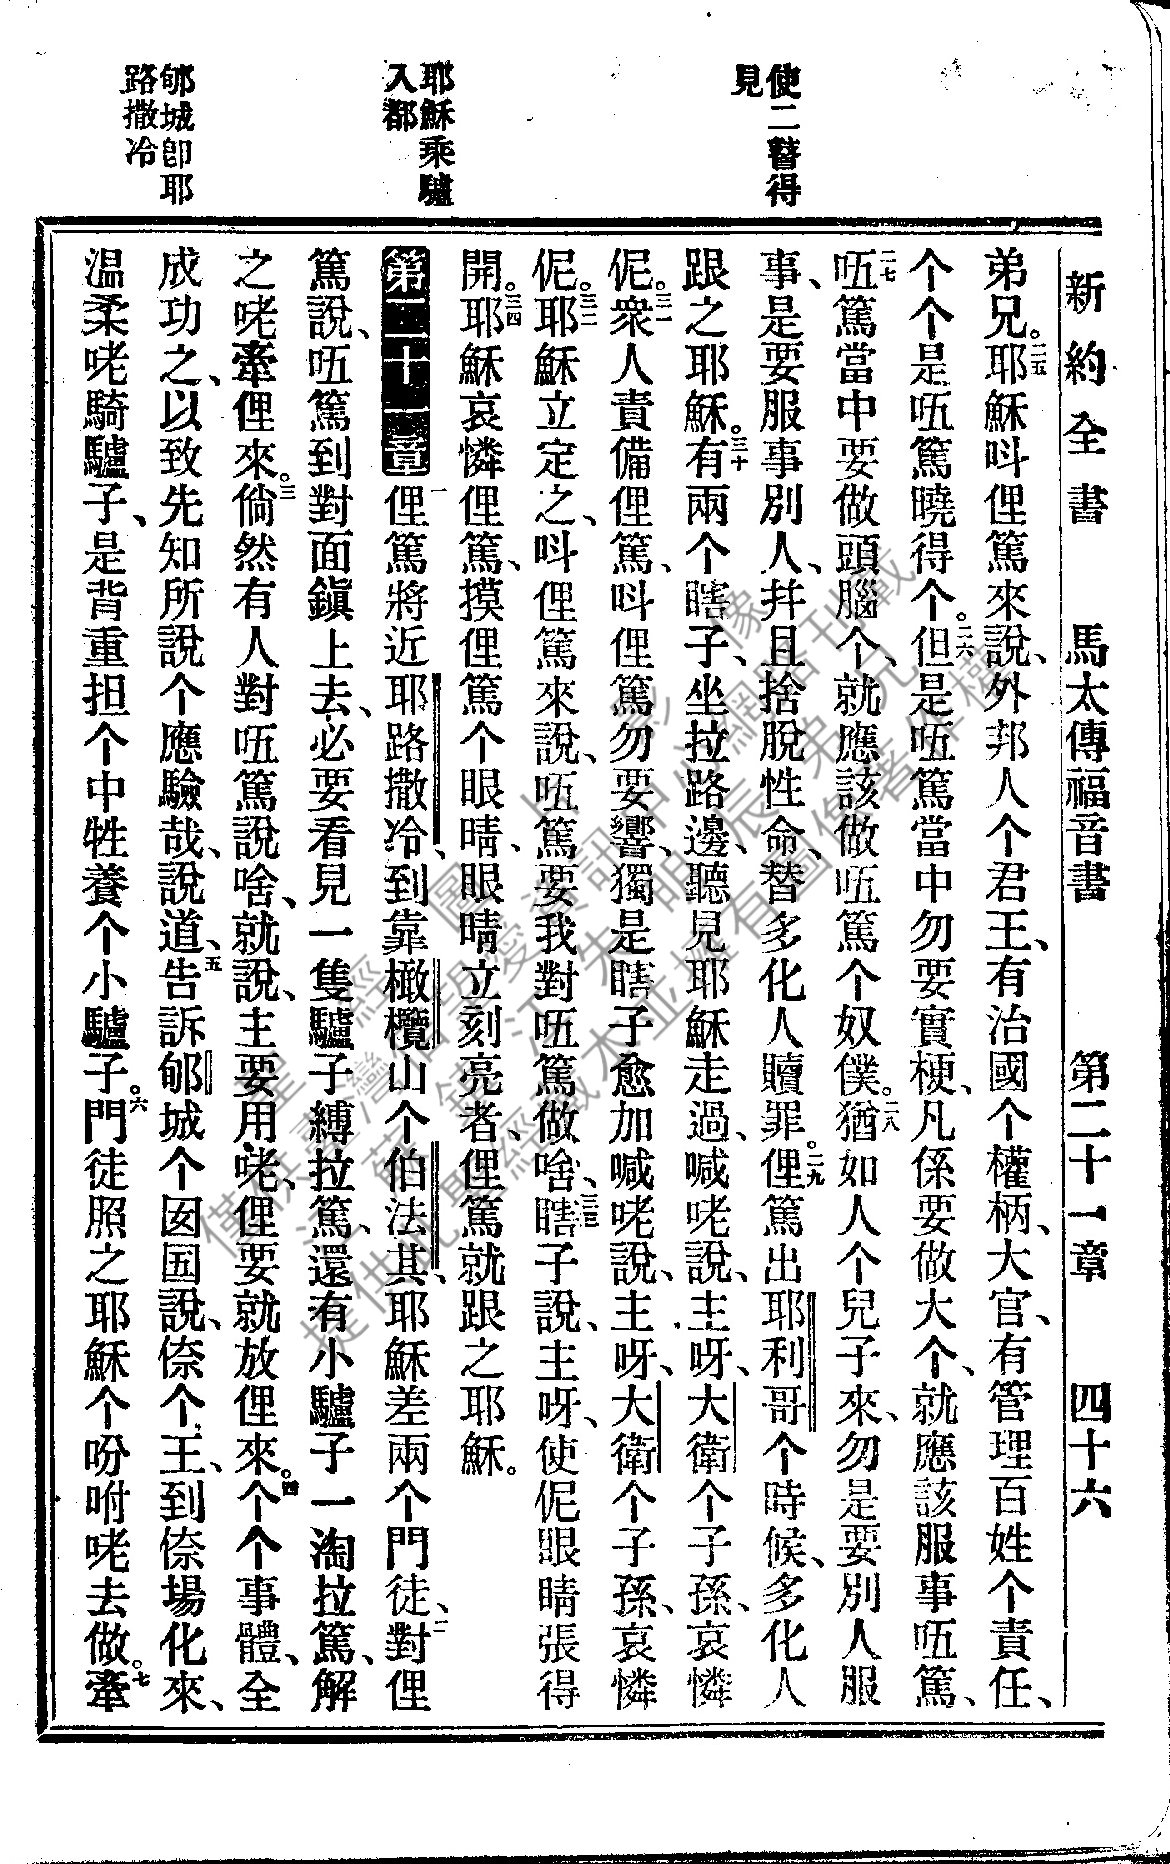 新約全書 馬太傳福音書 第二十一章 四十六
使二瞽得
見
耶穌乘驢
入都
郇城卽耶
路撒冷
弟兄。二五耶穌呌俚篤來說、外邦人个君王、有治國个權柄、大官、有管理百姓个責任、
个个是㕶篤曉得个。二六但是㕶篤當中勿要實梗、凡係要做大个、就應該服事㕶篤、
二七㕶篤當中要做頭腦个、就應該做㕶篤个奴僕。二八猶如人个兒子來、勿是要別人服
事、是要服事別人、幷且捨脫性命、替多化人贖罪。二九俚篤出耶利哥个時候、多化人
跟之耶穌。三十有兩个瞎子、坐拉路邊、聽見耶穌走過、喊咾說、主呀、大衛个子孫、哀憐
伲。三一衆人責備俚篤、呌俚篤勿要響、獨是瞎子愈加喊咾說、主呀、大衛个子孫、哀憐
伲。三二耶穌立定之、呌俚篤來說、㕶篤要我對㕶篤做啥、三三瞎子說、主呀、使伲眼睛張得
開。三四耶穌哀憐俚篤、摸俚篤个眼睛、眼睛立刻亮者、俚篤就跟之耶穌。
第二十一章 一俚篤將近耶路撒冷、到靠橄欖山个伯法其、耶穌差兩个門徒、二對俚
篤說、㕶篤到對面鎭上去、必要看見一隻驢子縛拉篤、還有小驢子一淘拉篤、解
之咾牽俚來。三倘然有人對㕶篤說啥、就說、主要用咾、俚要就放俚來。四个个事體、全
成功之、以致先知所說个應驗哉、說道、五告訴郇城个囡囯說、倷个王、到倷場化來、
温柔咾騎驢子、是背重担个中牲養个小驢子。六門徒照之耶穌个吩咐咾去做。七牽
聖經圖
上
影像